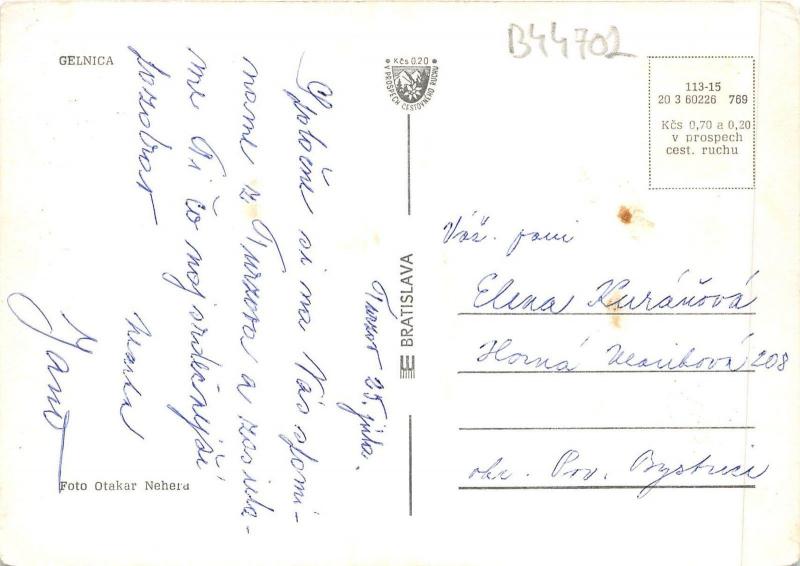 GELNICA
B44702
Kčs 0,20
V PROSPECH CESTOVNÉHO RUCHU
113-15
20 3 60226 769
Kčs 0,70 a 0,20
v prospech
cest. ruchu
Turzov 25. júla.
Spoločne si na Vás spomí-
name z Turzova a zasiela-
me Ti čo najsrdečnejší
pozdrav
Jano
BRATISLAVA
Váž. pani
Elena Kuráňová
Horná 208
okr. Pov. Bystrica
Foto Otakar Nehera